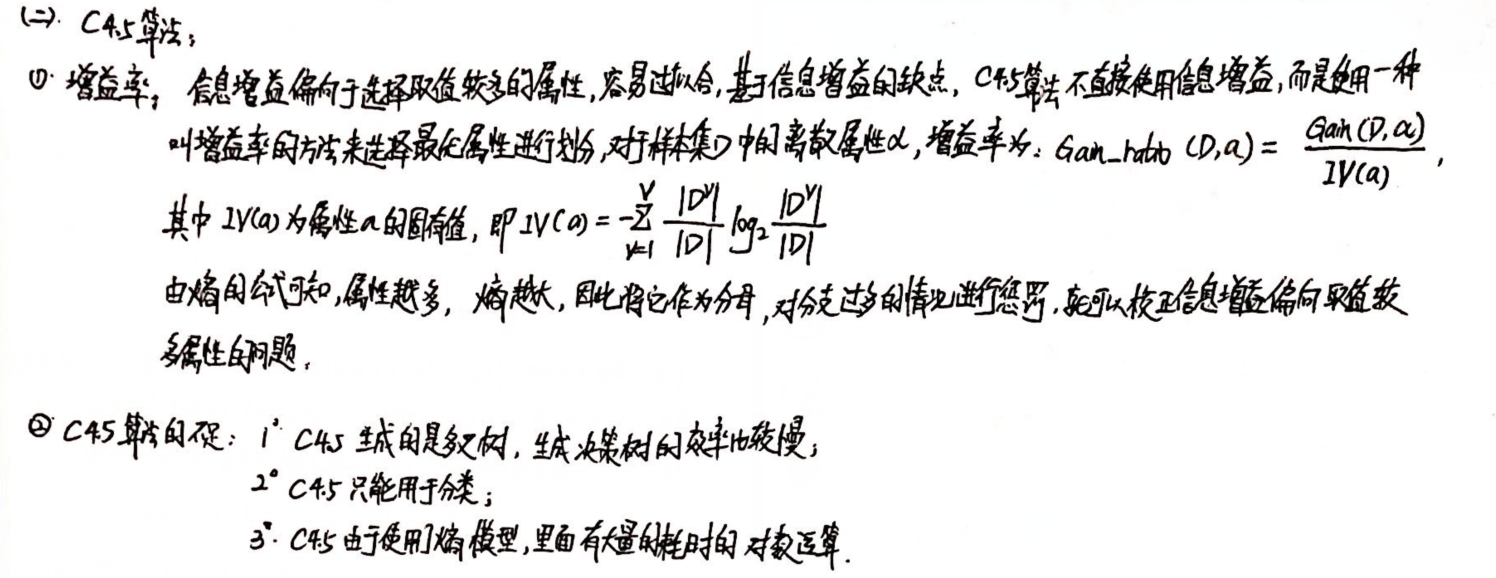 (二). C4.5算法:
①. 增益率: 信息增益偏向于选择取值较多的属性,容易过拟合,基于信息增益的缺点, C4.5算法不直接使用信息增益,而是使用一种
叫增益率的方法来选择最优属性进行划分,对于样本集D中的离散属性α,增益率为: Gain_ratio (D,a) = Gain(D,α) / IV(a) ,
其中 IV(a) 为属性a的固有值, 即 IV(a) = -∑_{v=1}^{V} |D^v|/|D| log₂ |D^v|/|D|
由熵的公式可知,属性越多, 熵越大, 因此将它作为分母,对分支过多的情况进行惩罚.就可以校正信息增益偏向取值较
多属性的问题.
② C4.5算法的不足: 1° C4.5 生成的是多叉树, 生成决策树的效率比较慢;
2° C4.5 只能用于分类;
3°. C4.5 由于使用了熵模型,里面有大量的耗时的 对数运算.